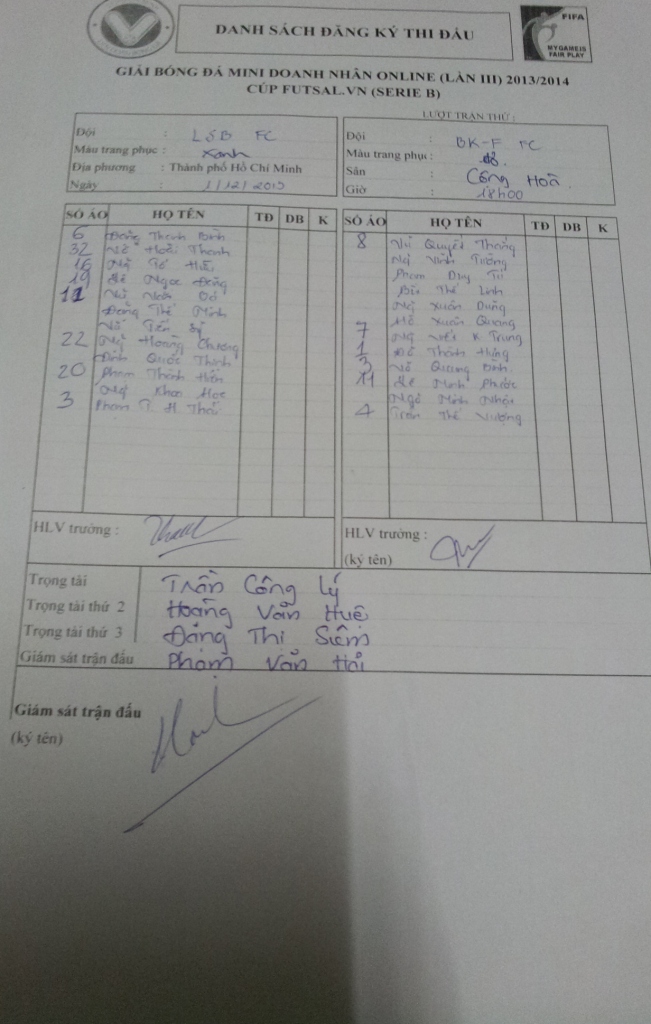 DANH SÁCH ĐĂNG KÝ THI ĐẤU
FIFA
MY GAME IS
FAIR PLAY
GIẢI BÓNG ĐÁ MINI DOANH NHÂN ONLINE (LẦN III) 2013/2014
CÚP FUTSAL.VN (SERIE B)
LƯỢT TRẬN THỨ :
Đội : LSB FC
Màu trang phục : Xanh
Địa phương : Thành phố Hồ Chí Minh
Ngày : 1/12/2013
Đội : BK-F FC
Màu trang phục : đỏ.
Sân : Cộng Hoà.
Giờ : 18h00
SỐ ÁO HỌ TÊN TĐ DB K
6 Đặng Thanh Bình
32 Hoài Thanh
16
19 Lê Ngọc
11
Đặng Thế Minh
22 Hoàng Chương
Đinh Quốc Thịnh
20 Phạm Thành Hiền
Khoa Học
3 Phạm T. H. Thái
SỐ ÁO HỌ TÊN TĐ DB K
8 Vũ Quyết Thắng
Phạm Duy Tú
Bùi Thế Linh
Xuân Dũng
Hồ Xuân Quang
7 K Trung
1 Đỗ Thành Hưng
3 Quang Bình
11 Lê Minh Phước
Ngô Minh Nhật
4 Trần Thế Vượng
HLV trưởng :
HLV trưởng :
(ký tên)
Trọng tài Trần Công Lý
Trọng tài thứ 2 Hoàng Văn Huệ
Trọng tài thứ 3 Đặng Thị Siêm
Giám sát trận đấu Phạm Văn Hải
Giám sát trận đấu
(ký tên)